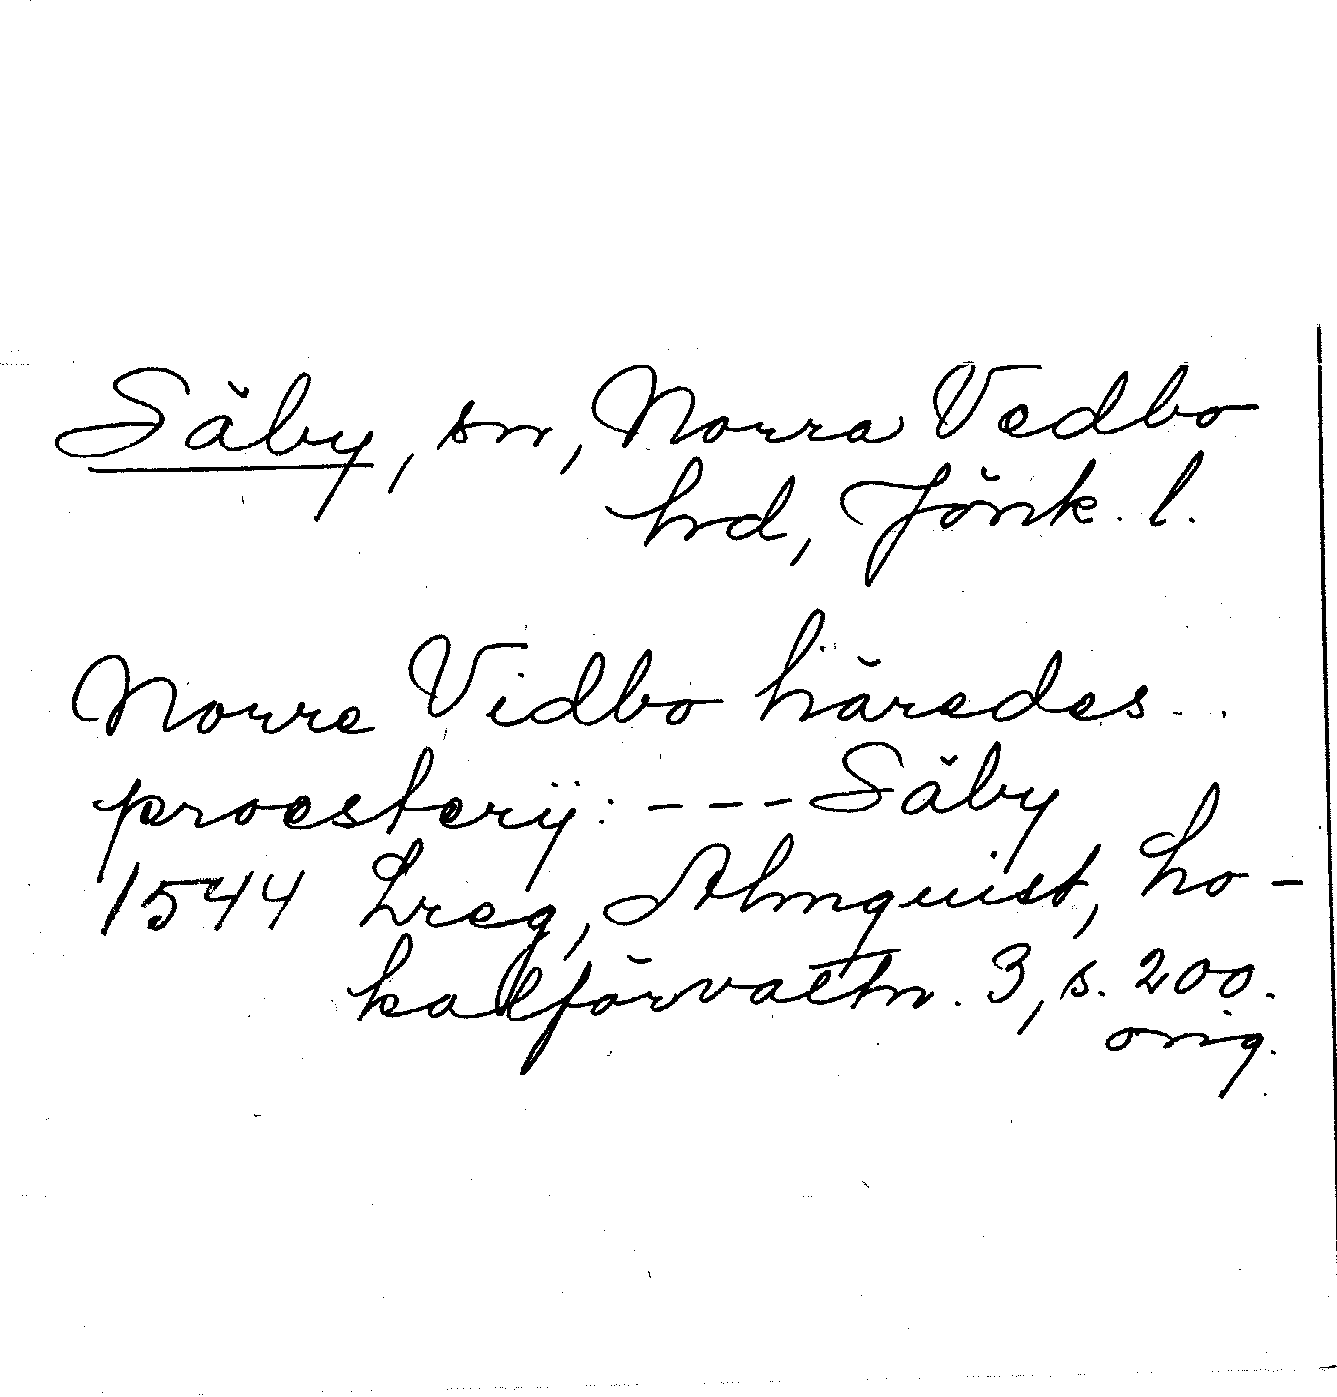 Säby, sn, Norra Vedbo
hrd, Jönk. l.
Norre Vidbo häredes
proesterij: --- Säby
1544 Lreg, Almquist, Lo-
kalförvaltn. 3, s. 200.
orig.